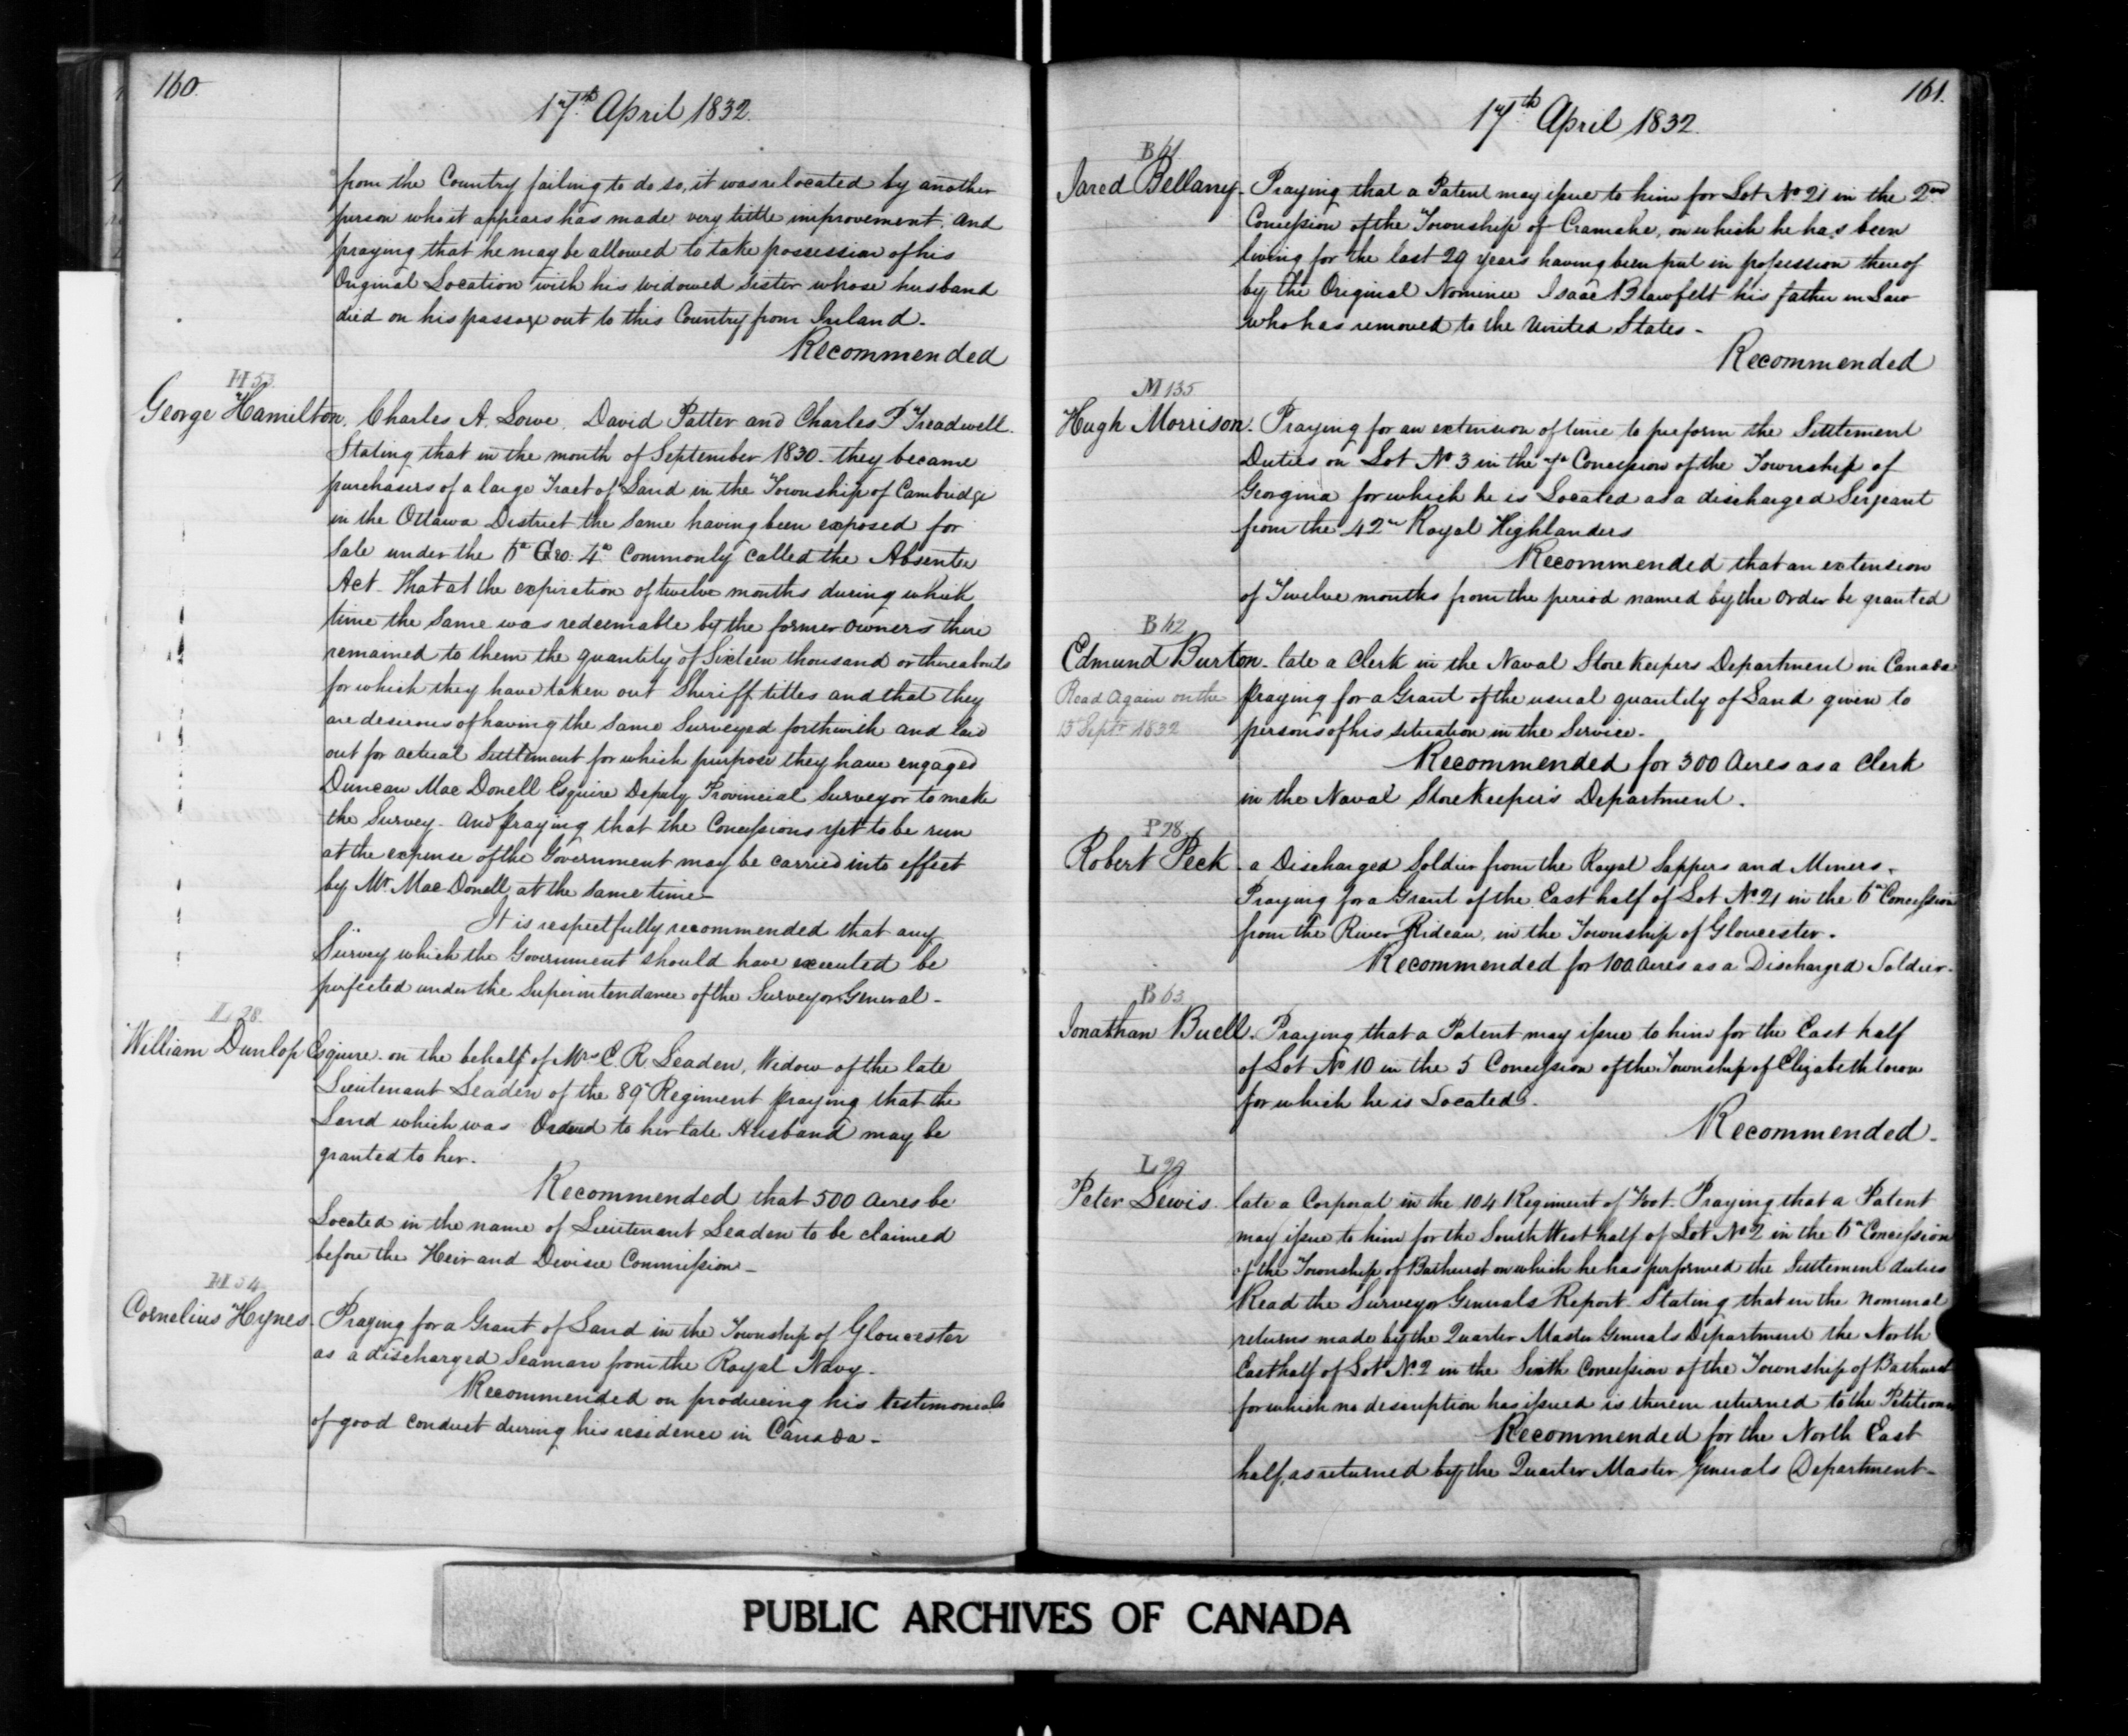 160.
17th April 1832.
from the Country failing to do so, it was relocated by another
person who it appears has made very little improvement, and
praying that he may be allowed to take possession of his
Original Location with his widowed Sister whose husband
died on his passage out to this Country from Ireland.
Recommended
H 53.
George Hamilton, Charles A. Lowe, David Patter and Charles P Treadwell.
Stating that in the month of September 1830 they became
purchasers of a large Tract of Land in the Township of Cambridge
in the Ottawa District the same having been exposed for
Sale under the 6th Geo. 4th Commonly called the Absentee
Act. That at the expiration of twelve months during which
time the same was redeemable by the former owners there
remained to them the quantity of Sixteen thousand or thereabouts
for which they have taken out Sheriff titles and that they
are desirous of having the same Surveyed forthwith and laid
out for actual Settlement for which purpose they have engaged
Duncan Mac Donell Esquire Deputy Provincial Surveyor to make
the Survey. And praying that the Concessions yet to be run
at the expense of the Government may be carried into effect
by Mr. Mac Donell at the same time
It is respectfully recommended that any
Survey which the Government should have executed be
perfected under the Superintendance of the Surveyor General.
L 28.
William Dunlop Esquire. on the behalf of Mrs C. R Leaden, Widow of the late
Lieutenant Leaden of the 89th Regiment praying that the
Land which was Ordered to her late Husband may be
granted to her.
Recommended that 500 Acres be
Located in the name of Lieutenant Leaden to be claimed
before the Heir and Devisee Commission
H 54.
Cornelius Hynes. Praying for a Grant of Land in the Township of Gloucester
as a discharged Seaman from the Royal Navy.
Recommended on producing his testimonials
of good conduct during his residence in Canada
161.
17th April 1832.
B 61
Jared Bellamy. Praying that a Patent may issue to him for Lot No 21 in the 2nd
Concession of the Township of Cramahe, on which he has been
living for the last 29 years having been put in possession thereof
by the Original Nominee Isaac Blawfelt his father in Law
who has removed to the United States
Recommended
M 135
Hugh Morrison. Praying for an extension of time to perform the Settlement
Duties on Lot No 3 in the 7th Concession of the Township of
Georgina for which he is Located as a discharged Serjeant
from the 42nd Royal Highlanders
Recommended that an extension
of Twelve months from the period named by the Order be granted
B 62
Edmund Burton. late a Clerk in the Naval Storekeepers Department in Canada
Read Again on the praying for a Grant of the usual quantity of Land given to
13 Septr 1832 persons of his situation in the Service.
Recommended for 300 Acres as a Clerk
in the Naval Storekeeper's Department.
P 28.
Robert Peck. a Discharged Soldier from the Royal Sappers and Miners.
Praying for a Grant of the East half of Lot No 21 in the 6th Concession
from the River Rideau, in the Township of Gloucester.
Recommended for 100 Acres as a Discharged Soldier.
B 63
Jonathan Buell. Praying that a Patent may issue to him for the East half
of Lot No 10 in the 5 Concession of the Township of Elizabethtown
for which he is Located.
Recommended
L 29
Peter Lewis. late a Corporal in the 104 Regiment of Foot. Praying that a Patent
may issue to him for the South West half of Lot No 2 in the 6th Concession
of the Township of Bathurst on which he has performed the Settlement duties
Read the Surveyor Generals Report. Stating that in the nominal
returns made by the Quarter Master Generals Department the North
East half of Lot No. 2 in the Sixth Concession of the Township of Bathurst
for which no description has issued is therein returned to the Petitioner
Recommended for the North East
half, as returned by the Quarter Master Generals Department
PUBLIC ARCHIVES OF CANADA